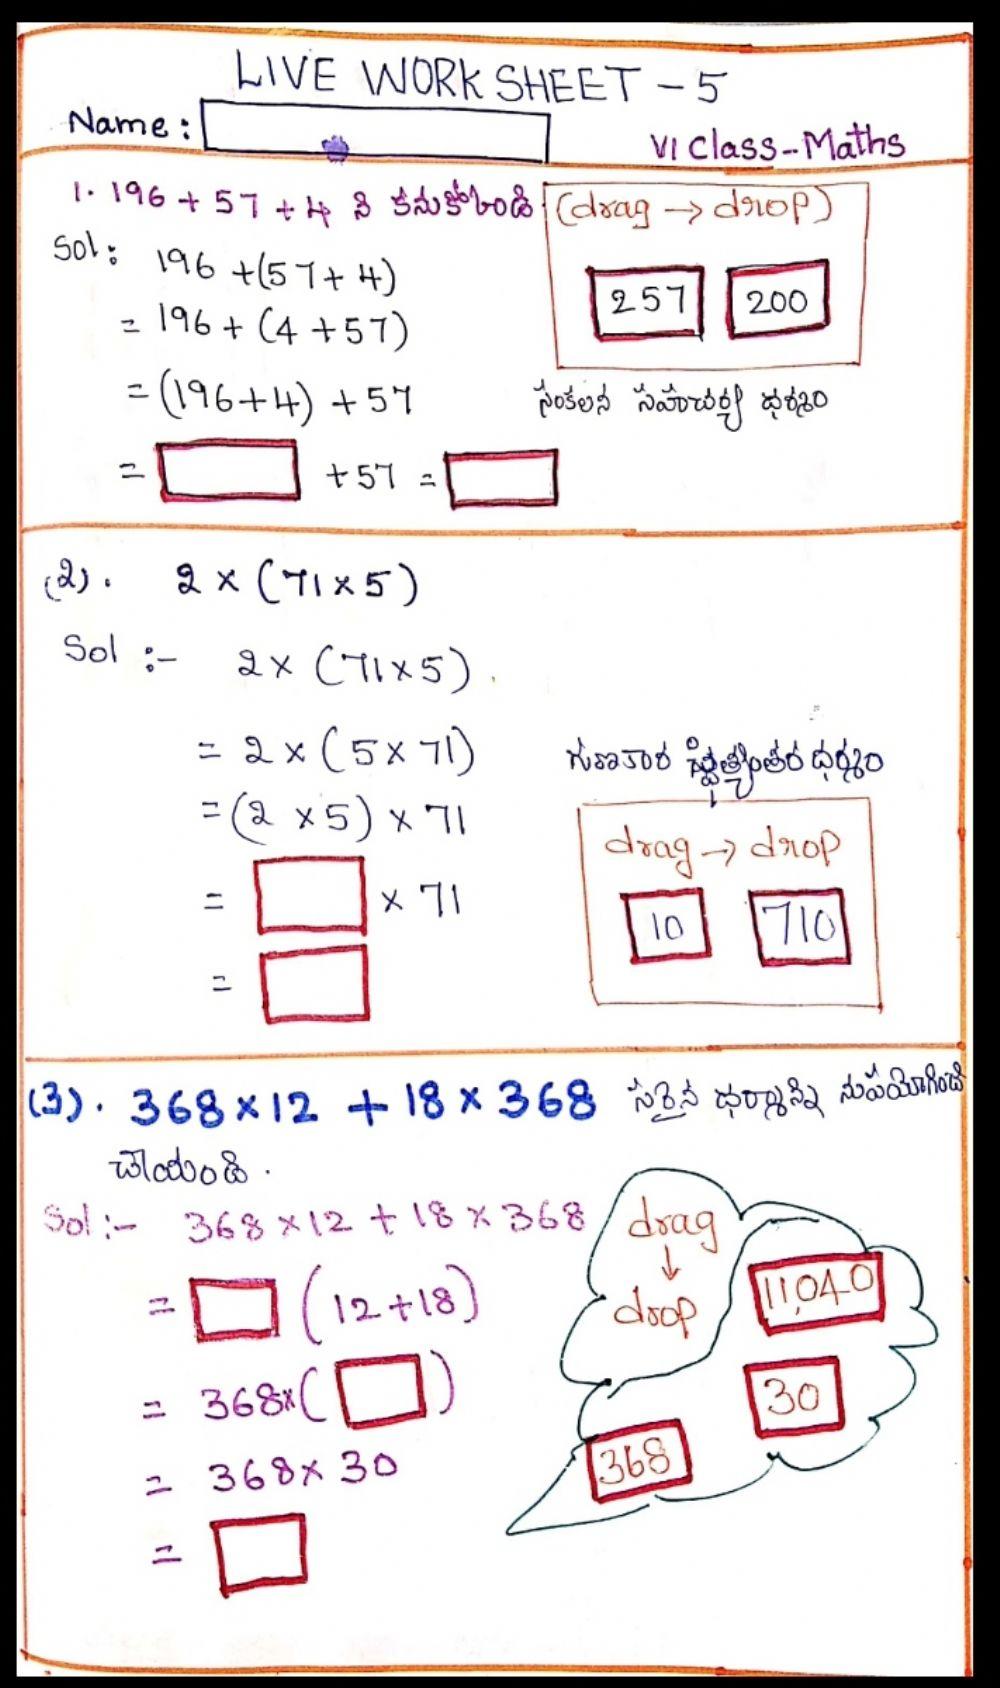 LIVE WORK SHEET - 5
Name :
VI Class - Maths
1. 196 + 57 + 4 ని కనుకోండి
(drag → drop)
257 200
Sol: 196 + (57 + 4)
= 196 + (4 + 57)
= (196+4) + 57
సంకలన సహచర్య ధర్మం
= + 57 =
(2). 2 × (71 × 5)
Sol :- 2 × (71 × 5)
= 2 × (5 × 71)
గుణకార స్థిత్యంతర ధర్మం
= (2 × 5) × 71
drag → drop
= × 71
10 710
=
(3). 368 × 12 + 18 × 368 సరైన ధర్మాన్ని నుపయోగించి
చేయండి.
Sol :- 368 × 12 + 18 × 368
drag
↓
drop
11,040
= (12+18)
= 368×( )
30
368
= 368 × 30
=